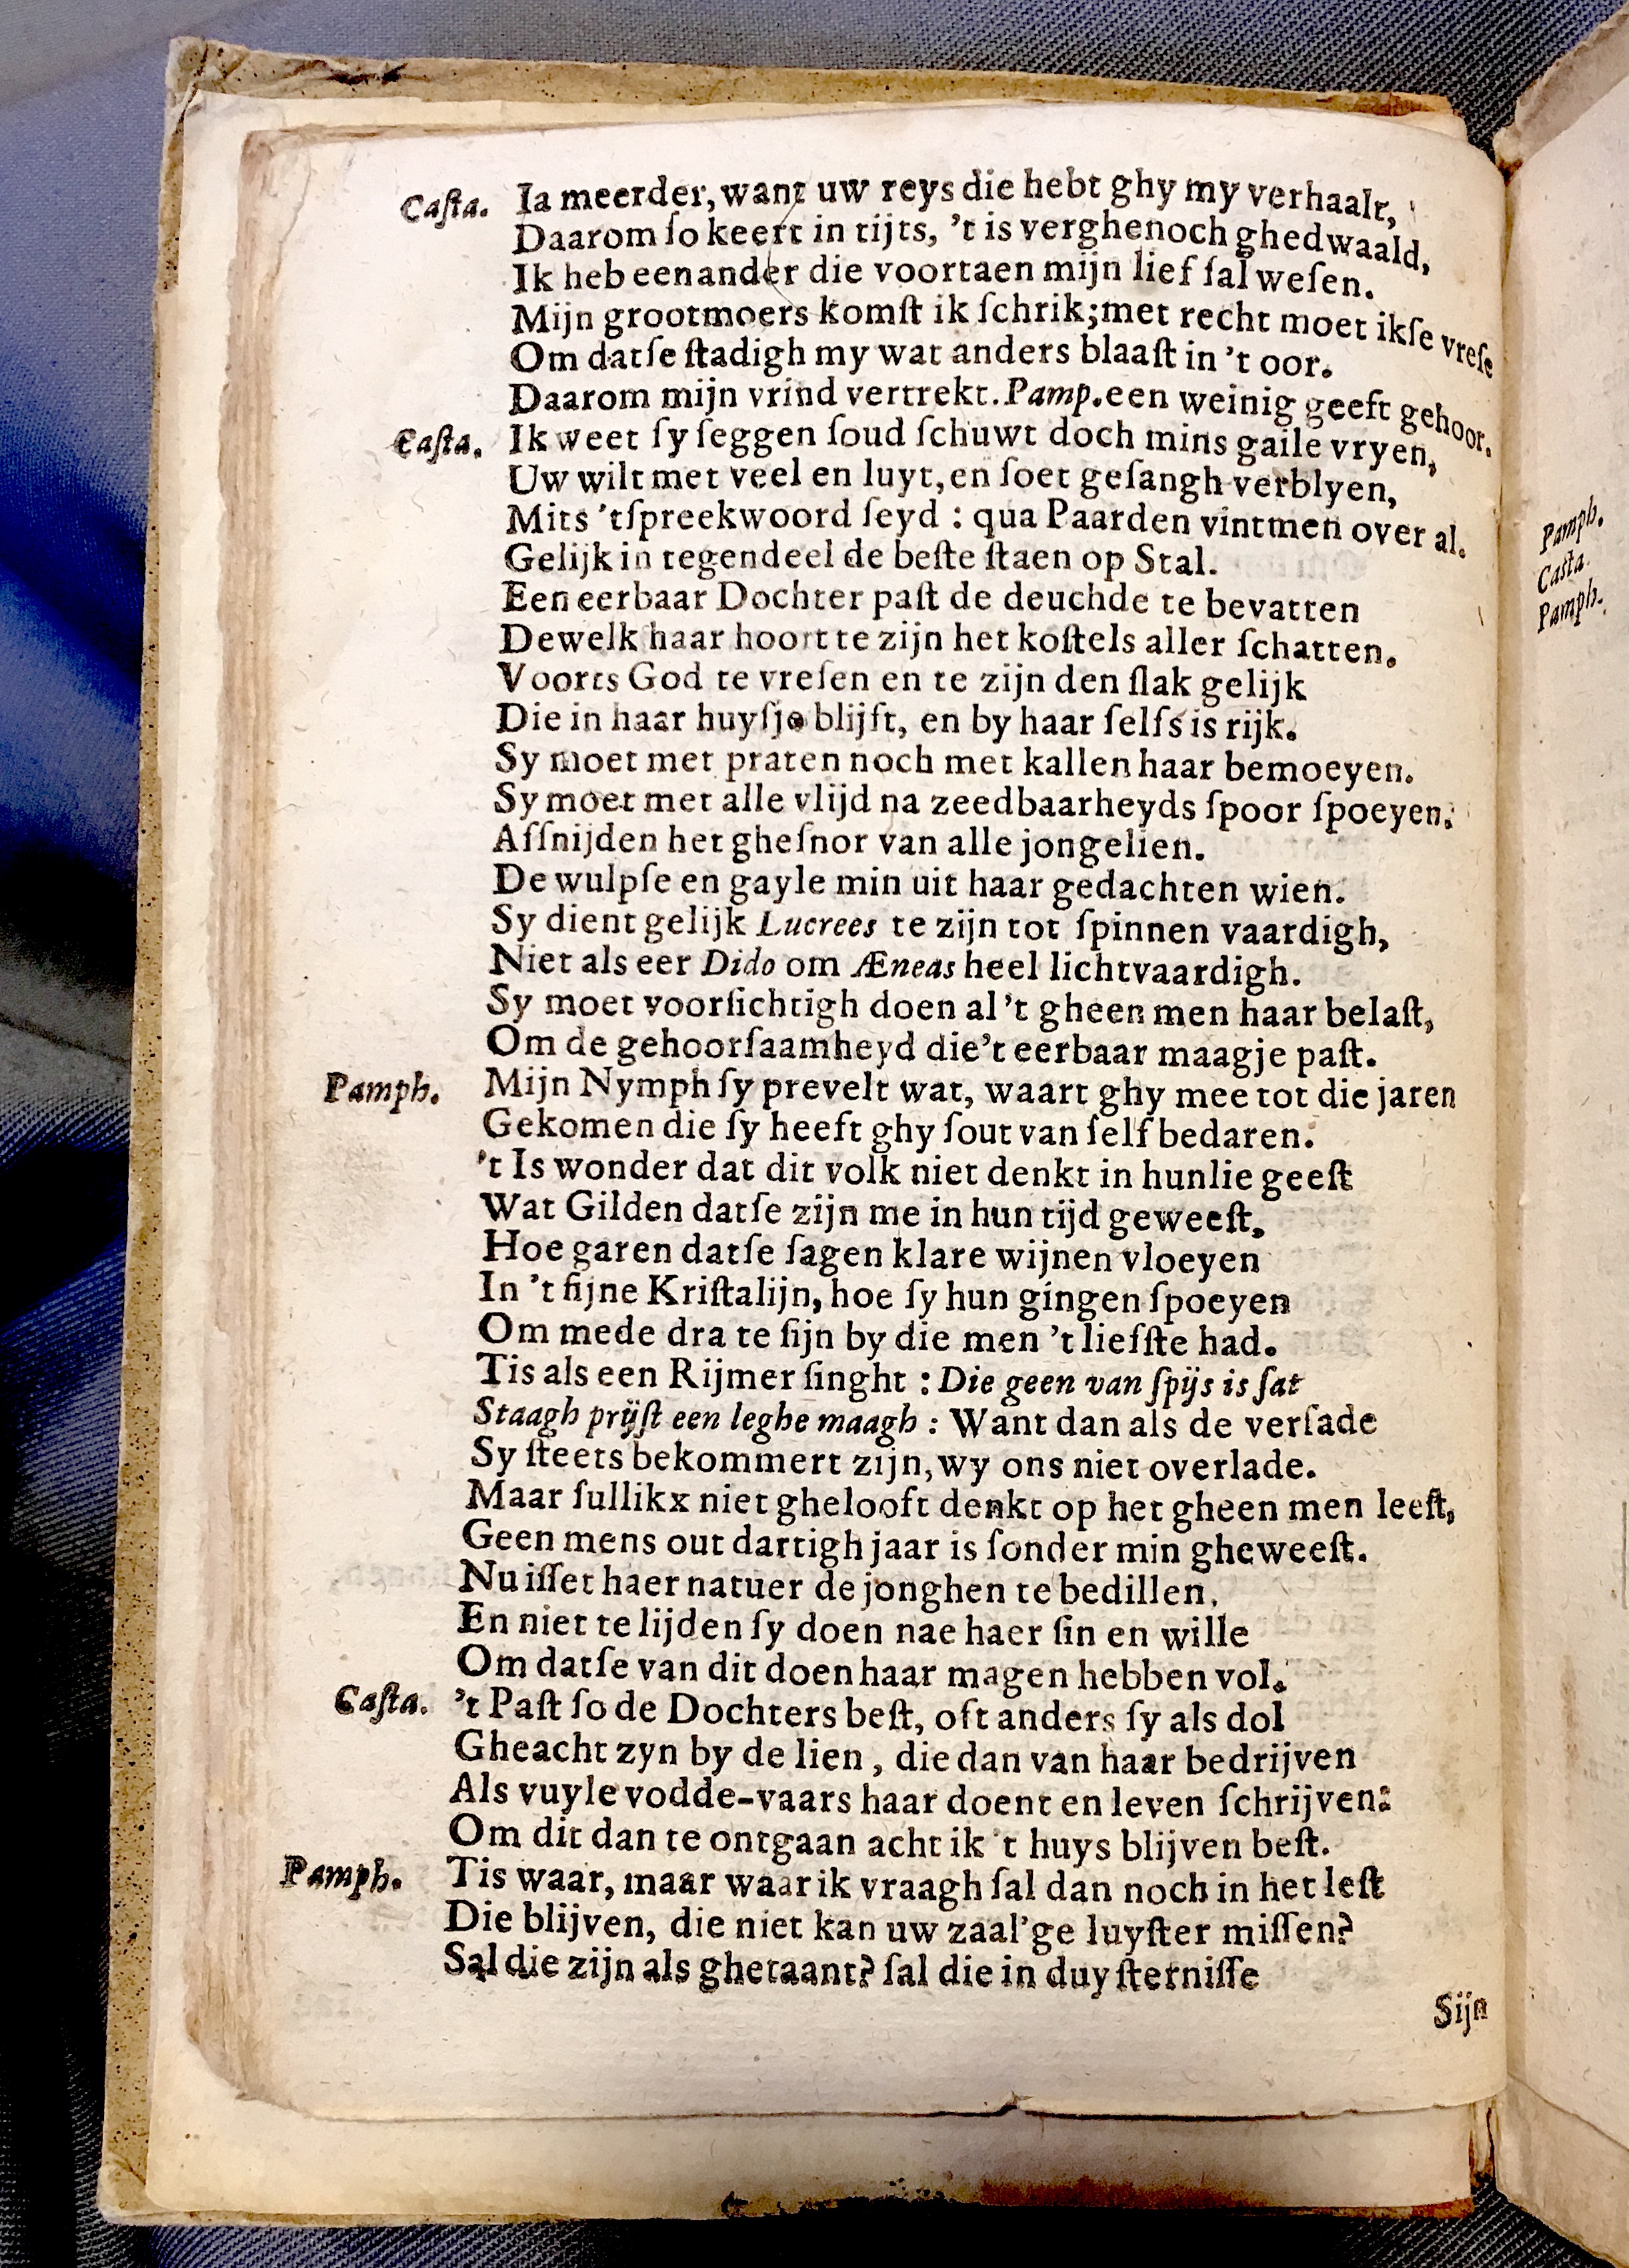 Caſta. Ia meerder, want uw reys die hebt ghy my verhaalt,
Daarom ſo keert in tijts, 't is verghenoch ghedwaald,
Ik heb een ander die voortaen mijn lief ſal weſen.
Mijn grootmoers komſt ik ſchrik; met recht moet ikſe vreſe
Om datſe ſtadigh my wat anders blaaſt in 't oor.
Daarom mijn vrind vertrekt. Pamp. een weinig geeft gehoor.
Caſta. Ik weet ſy ſeggen ſoud ſchuwt doch mins gaile vryen,
Uw wilt met veel en luyt, en ſoet geſangh verblyen,
Mits 'tſpreekwoord ſeyd : qua Paarden vintmen over al.
Gelijk in tegendeel de beſte ſtaen op Stal.
Een eerbaar Dochter paſt de deuchde te bevatten
Dewelk haar hoort te zijn het koſtels aller ſchatten.
Voorts God te vreſen en te zijn den ſlak gelijk
Die in haar huyſje blijft, en by haar ſelfs is rijk.
Sy moet met praten noch met kallen haar bemoeyen.
Sy moet met alle vlijd na zeedbaarheyds ſpoor ſpoeyen.
Afſnijden het gheſnor van alle jongelien.
De wulpſe en gayle min uit haar gedachten wien.
Sy dient gelijk Lucrees te zijn tot ſpinnen vaardigh,
Niet als eer Dido om Æneas heel lichtvaardigh.
Sy moet voorſichtigh doen al 't gheen men haar belaſt,
Om de gehoorſaamheyd die't eerbaar maagje paſt.
Pamph. Mijn Nymph ſy prevelt wat, waart ghy mee tot die jaren
Gekomen die ſy heeft ghy ſout van ſelf bedaren.
't Is wonder dat dit volk niet denkt in hunlie geeſt
Wat Gilden datſe zijn me in hun tijd geweeſt,
Hoe garen datſe ſagen klare wijnen vloeyen
In 't fijne Kriſtalijn, hoe ſy hun gingen ſpoeyen
Om mede dra te ſijn by die men 't liefſte had.
Tis als een Rijmer ſinght : Die geen van ſpijs is ſat
Staagh prijſt een leghe maagh : Want dan als de verſade
Sy ſteets bekommert zijn, wy ons niet overlade.
Maar ſullikx niet ghelooft denkt op het gheen men leeſt,
Geen mens out dartigh jaar is ſonder min gheweeſt.
Nu iſſet haer natuer de jonghen te bedillen,
En niet te lijden ſy doen nae haer ſin en wille
Om datſe van dit doen haar magen hebben vol.
Caſta. 't Paſt ſo de Dochters beſt, oft anders ſy als dol
Gheacht zyn by de lien , die dan van haar bedrijven
Als vuyle vodde-vaars haar doent en leven ſchrijven:
Om dit dan te ontgaan acht ik 't huys blijven beſt.
Pamph. Tis waar, maar waar ik vraagh ſal dan noch in het leſt
Die blijven, die niet kan uw zaal'ge luyſter miſſen?
Sal die zijn als ghetaant? ſal die in duyſterniſſe
Sijn
Pamph.
Caſta.
Pamph.